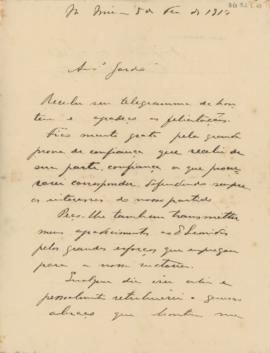 5 de de 1910
Recebi seu telegramma de hon
tem e agradeço as felicitações.
Fico muito grato pela grande
prova de confiança que recebi de
sua parte, confiança a que procu
rarei corresponder defendendo sempre
os interesses do nosso partido.
Peço-lhe tambem transmetter
meus agradecimentos ao
pelos grandes esforços que empregou
para a nossa victoria.
Qualquer dia irei ahi e
pessoalmente retribuirei o
abraço que hontem me